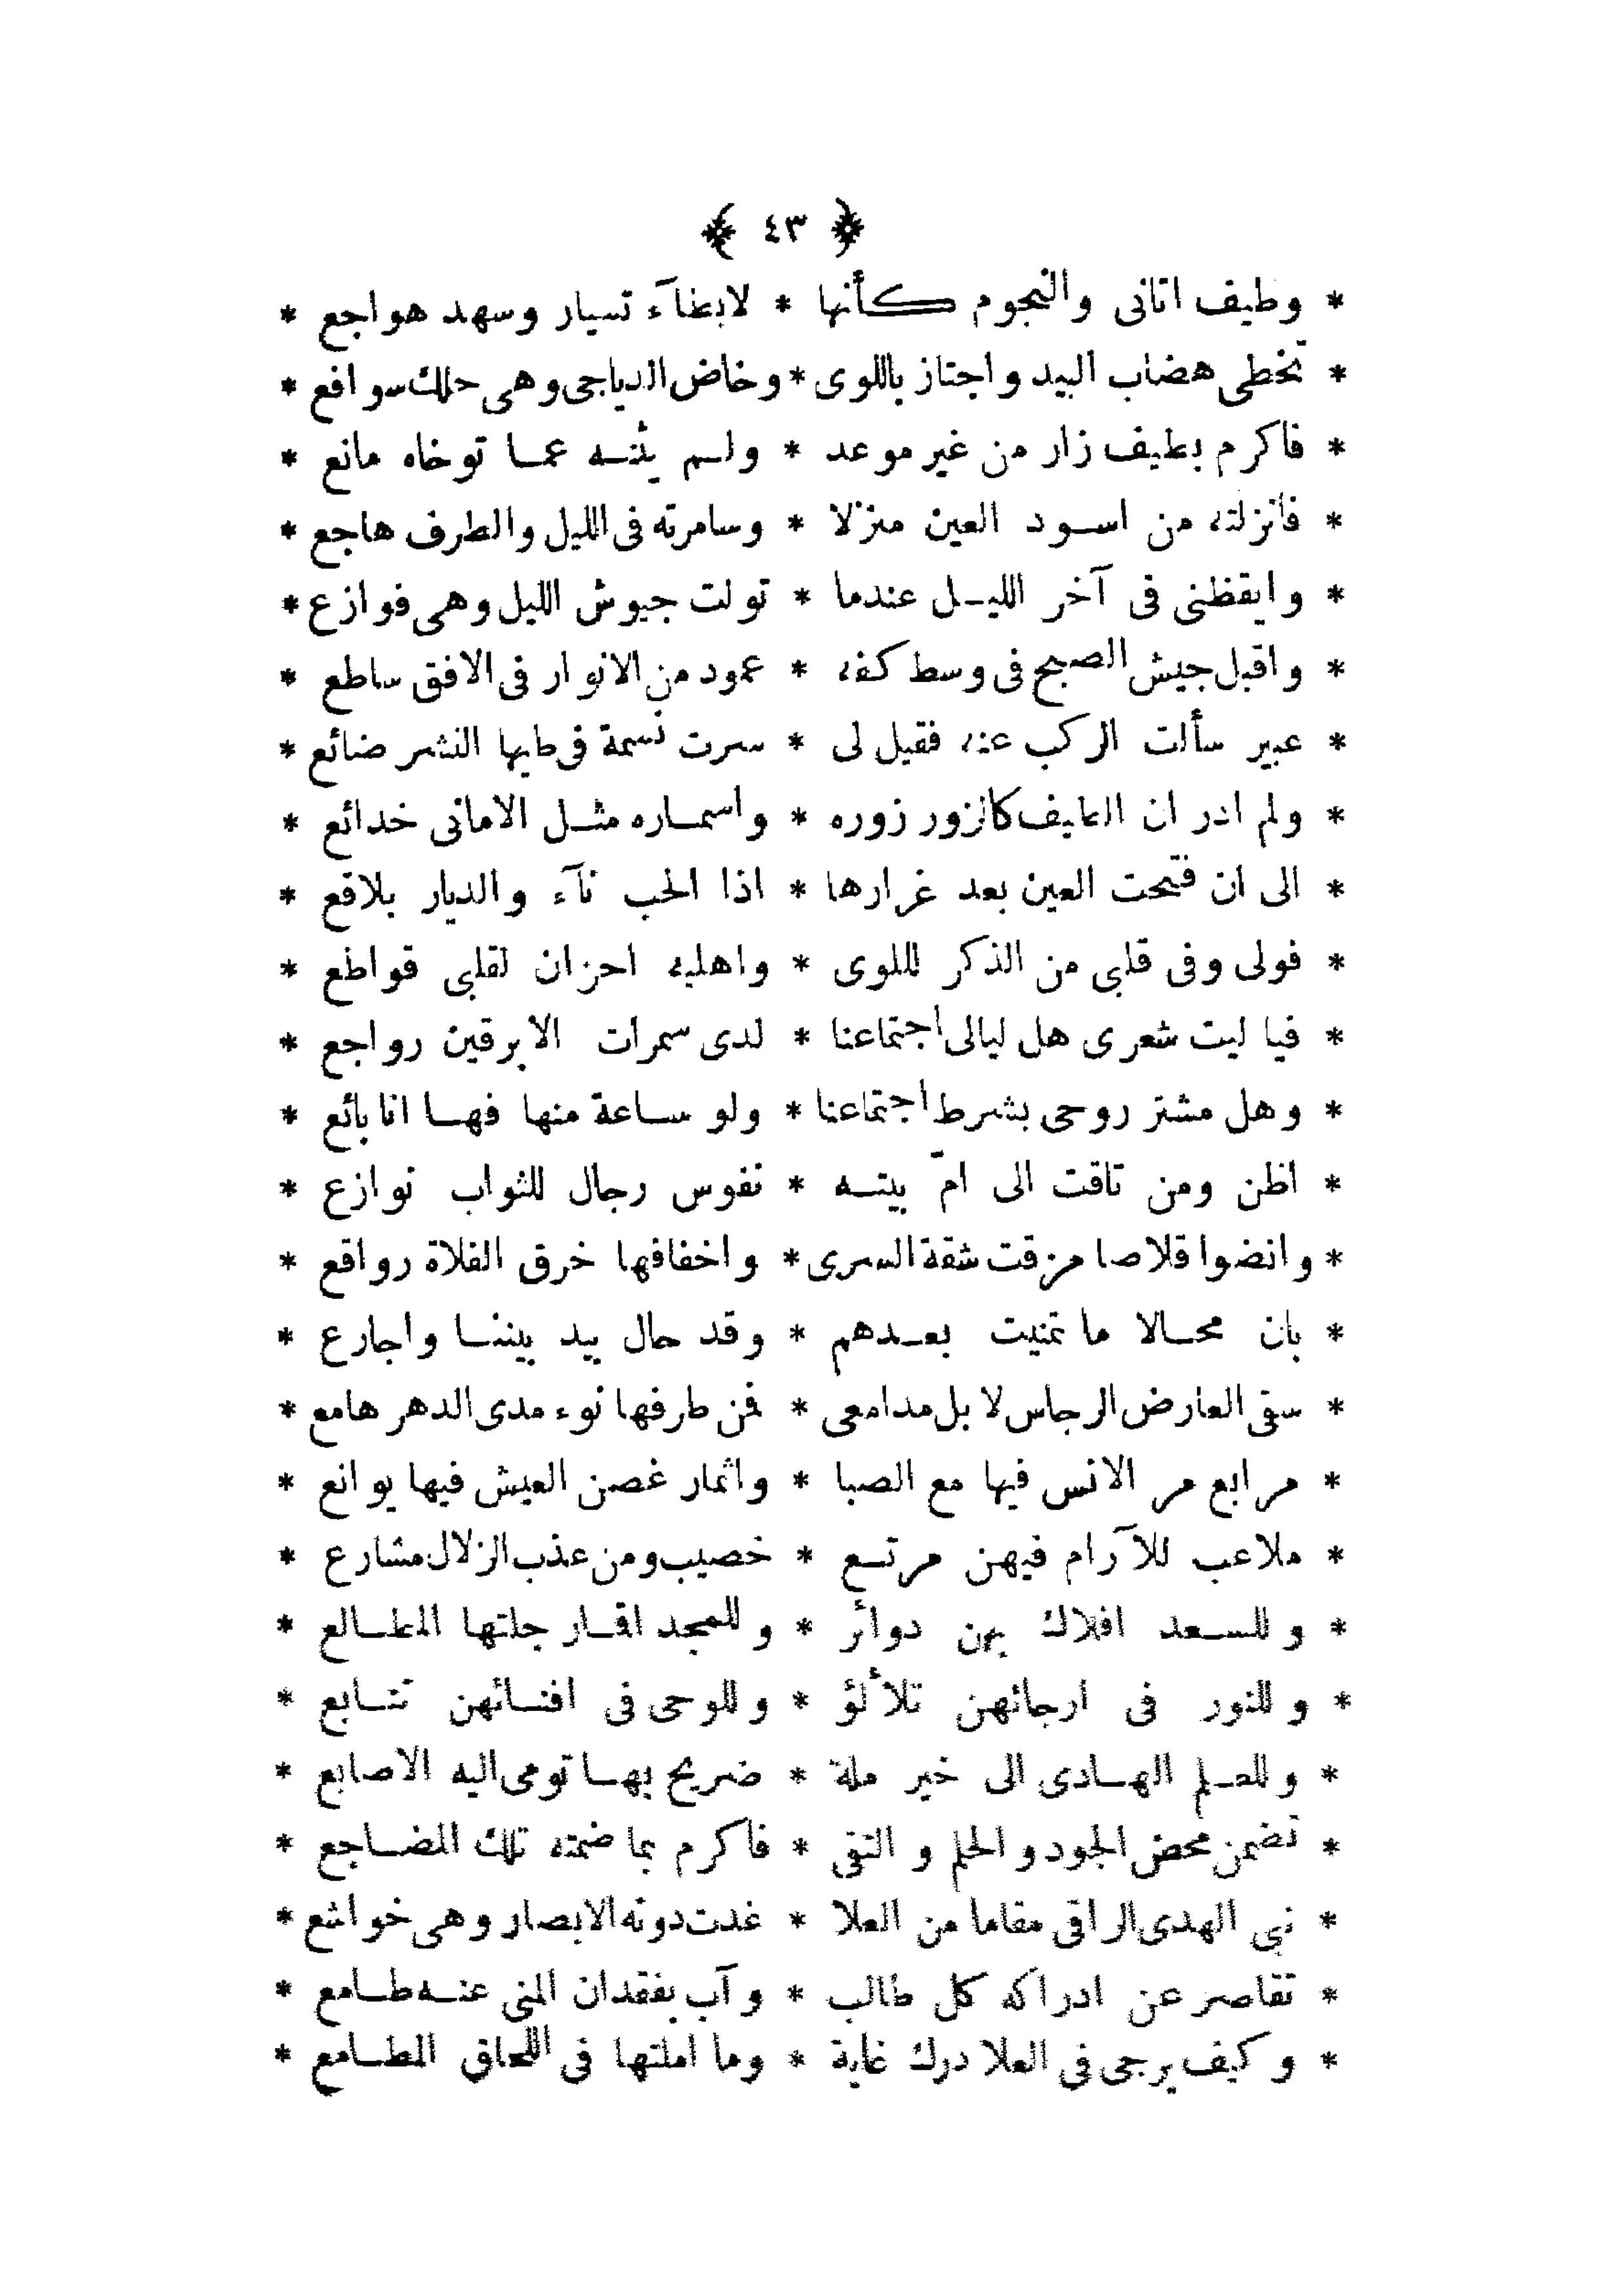 ﴿ ٤٣ ﴾
* وطيف اتانى والنجوم كأنها * لابطآء تسيار وسهد هواجع *
* تخطى هضاب البيد واجتاز باللوى * وخاض الدياجى وهى حلك سوافع *
* فاكرم بطيف زار من غير موعد * ولم يثنه عما توخاه مانع *
* فأنزلته من اسود العين منزلا * وسامرته فى الليل والطرف هاجع *
* وايقظنى فى آخر الليل عندما * تولت جيوش الليل وهى فوازع *
* واقبل جيش الصبح فى وسط كفه * عمود من الانوار فى الافق ساطع *
* عبير سألت الركب عنه فقيل لى * سرت نسمة فى طيها النشر ضائع *
* ولم ادر ان الطيف كالزور زوره * واسماره مثل الامانى خدائع *
* الى ان فتحت العين بعد غرارها * اذا الحب نآء والديار بلاقع *
* فولى وفى قلبى من الذكر للوى * واهليه احزان لقلبى قواطع *
* فيا ليت شعرى هل ليالى اجتماعنا * لدى سمرات الابرقين رواجع *
* وهل مشتر روحى بشرط اجتماعنا * ولو ساعة منها فها انا بائع *
* اظن ومن تاقت الى امّ بيته * نفوس رجال للثواب نوازع *
* وانضوا قلاصا مزقت شقة السرى * واخفافها خرق الفلاة رواقع *
* بان محالا ما تمنيت بعدهم * وقد حال بيد بيننا واجارع *
* سقى العارض الرجاس لا بل مدامعى * فمن طرفها نوء مدى الدهر هامع *
* مرابع مر الانس فيها مع الصبا * واثمار غصن العيش فيها يوانع *
* ملاعب للآرام فيهن مرتع * خصيب ومن عذب الزلال مشارع *
* وللسعد افلاك بهن دوائر * وللمجد اقمار جلتها المطالع *
* وللنور فى ارجائهن تلألؤ * وللوحى فى افنائهن تتابع *
* وللعلم الهادى الى خير ملة * ضريح بها تومى اليه الاصابع *
* تضمن محض الجود والحلم والتقى * فاكرم بما ضمته تلك المضاجع *
* نبى الهدى الراقى مقاما من العلا * غدت دونه الابصار وهى خواشع *
* تقاصر عن ادراكه كل طالب * وآب بفقدان المنى عنه طامع *
* وكيف يرجى فى العلا درك غاية * وما املتها فى اللحاق المطامع *